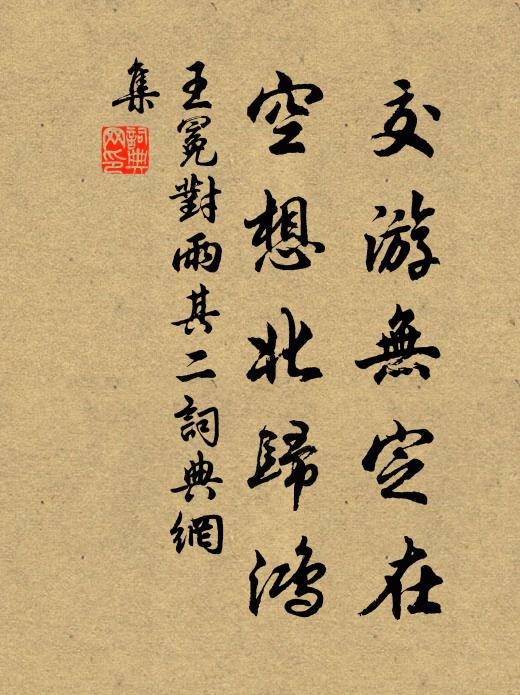 交游無定在
空想北歸鴻
王冕對雨其二詞典網
集
詞典網印